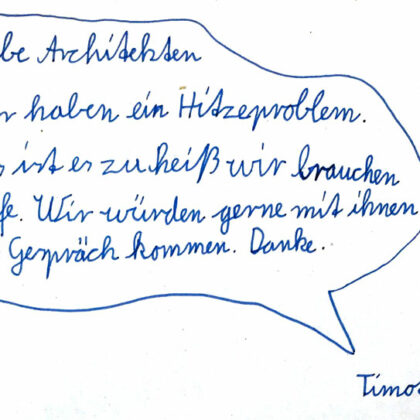 be Architekten
r haben ein Hitzeproblem.
s ist es zu heiß wir brauchen
fe. Wir würden gerne mit ihnen
Gespräch kommen. Danke.
Timo